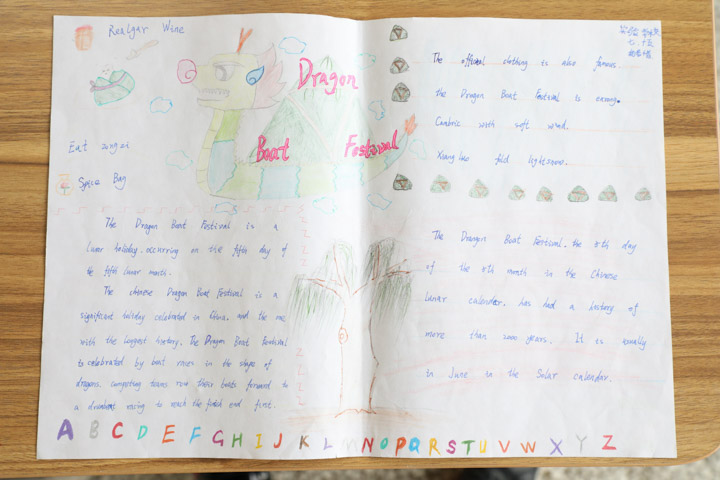 Realgar Wine
Eat zongzi
Spice Bag
Dragon
Boat Festival
The official clothing is also famous.
the Dragon Boat Festival is
Cambric with soft wind.
Xiang luo fold light snow.
The Dragon Boat Festival is a
lunar holiday, occurring on the fifth day of
the fifth lunar month.
The chinese Dragon Boat Festival is a
significant holiday celebrated in China, and the one
with the longest history. The Dragon Boat Festival
is celebrated by boat races in the shape of
dragons. competing teams row their boats forward to
a drumbeat racing to reach the finish end first.
The Dragon Boat Festival, the 5th day
of the 5th month in the Chinese
lunar calendar, has had a history of
more than 2000 years. It is usually
in June in the Solar calendar.
A B C D E F G H I J K L M N O P Q R S T U V W X Y Z